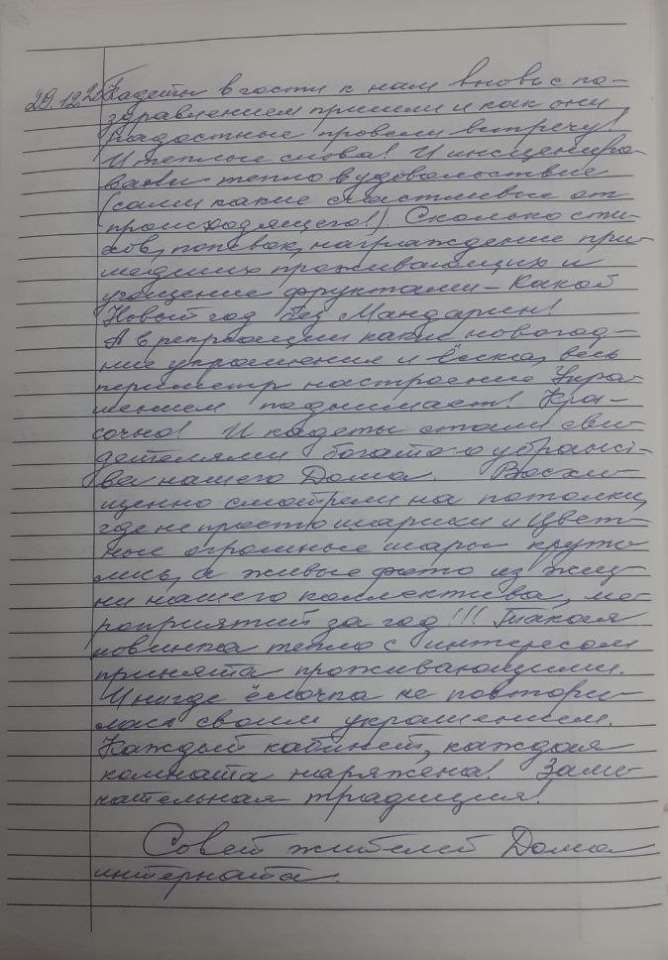 29.12.2 Кадеты в гости к нам вновь с по-
здравлением пришли и как они
радостные провели встречу!
И теплые слова! И инсцениро-
вали тепло в удовольствие
(сами какие счастливые от
происходящего!) Сколько сти-
хов, попевок, награждение при-
шедших проживающих и
угощение фруктами – Какой
Новый год без Мандарин!
А в рекреации какие новогод-
ние украшения и ёлка, весь
периметр настроение Укра-
шением поднимает! Кра-
сочно! И кадеты стали сви-
детелями богатого убранст-
ва нашего Дома. Восхи-
щенно смотрели на потолки,
где не просто шарики и Цвет-
ные огромные шары кружи-
лись, а живые фото из жиз-
ни нашего коллектива, ме-
роприятий за год!!! Такая
новинка тепло с интересом
принята проживающими.
И нигде ёлочка не повтори-
лась своим украшением.
Каждый кабинет, каждая
комната наряжена! Заме-
чательная традиция!
Совет жителей Дома
интерната.